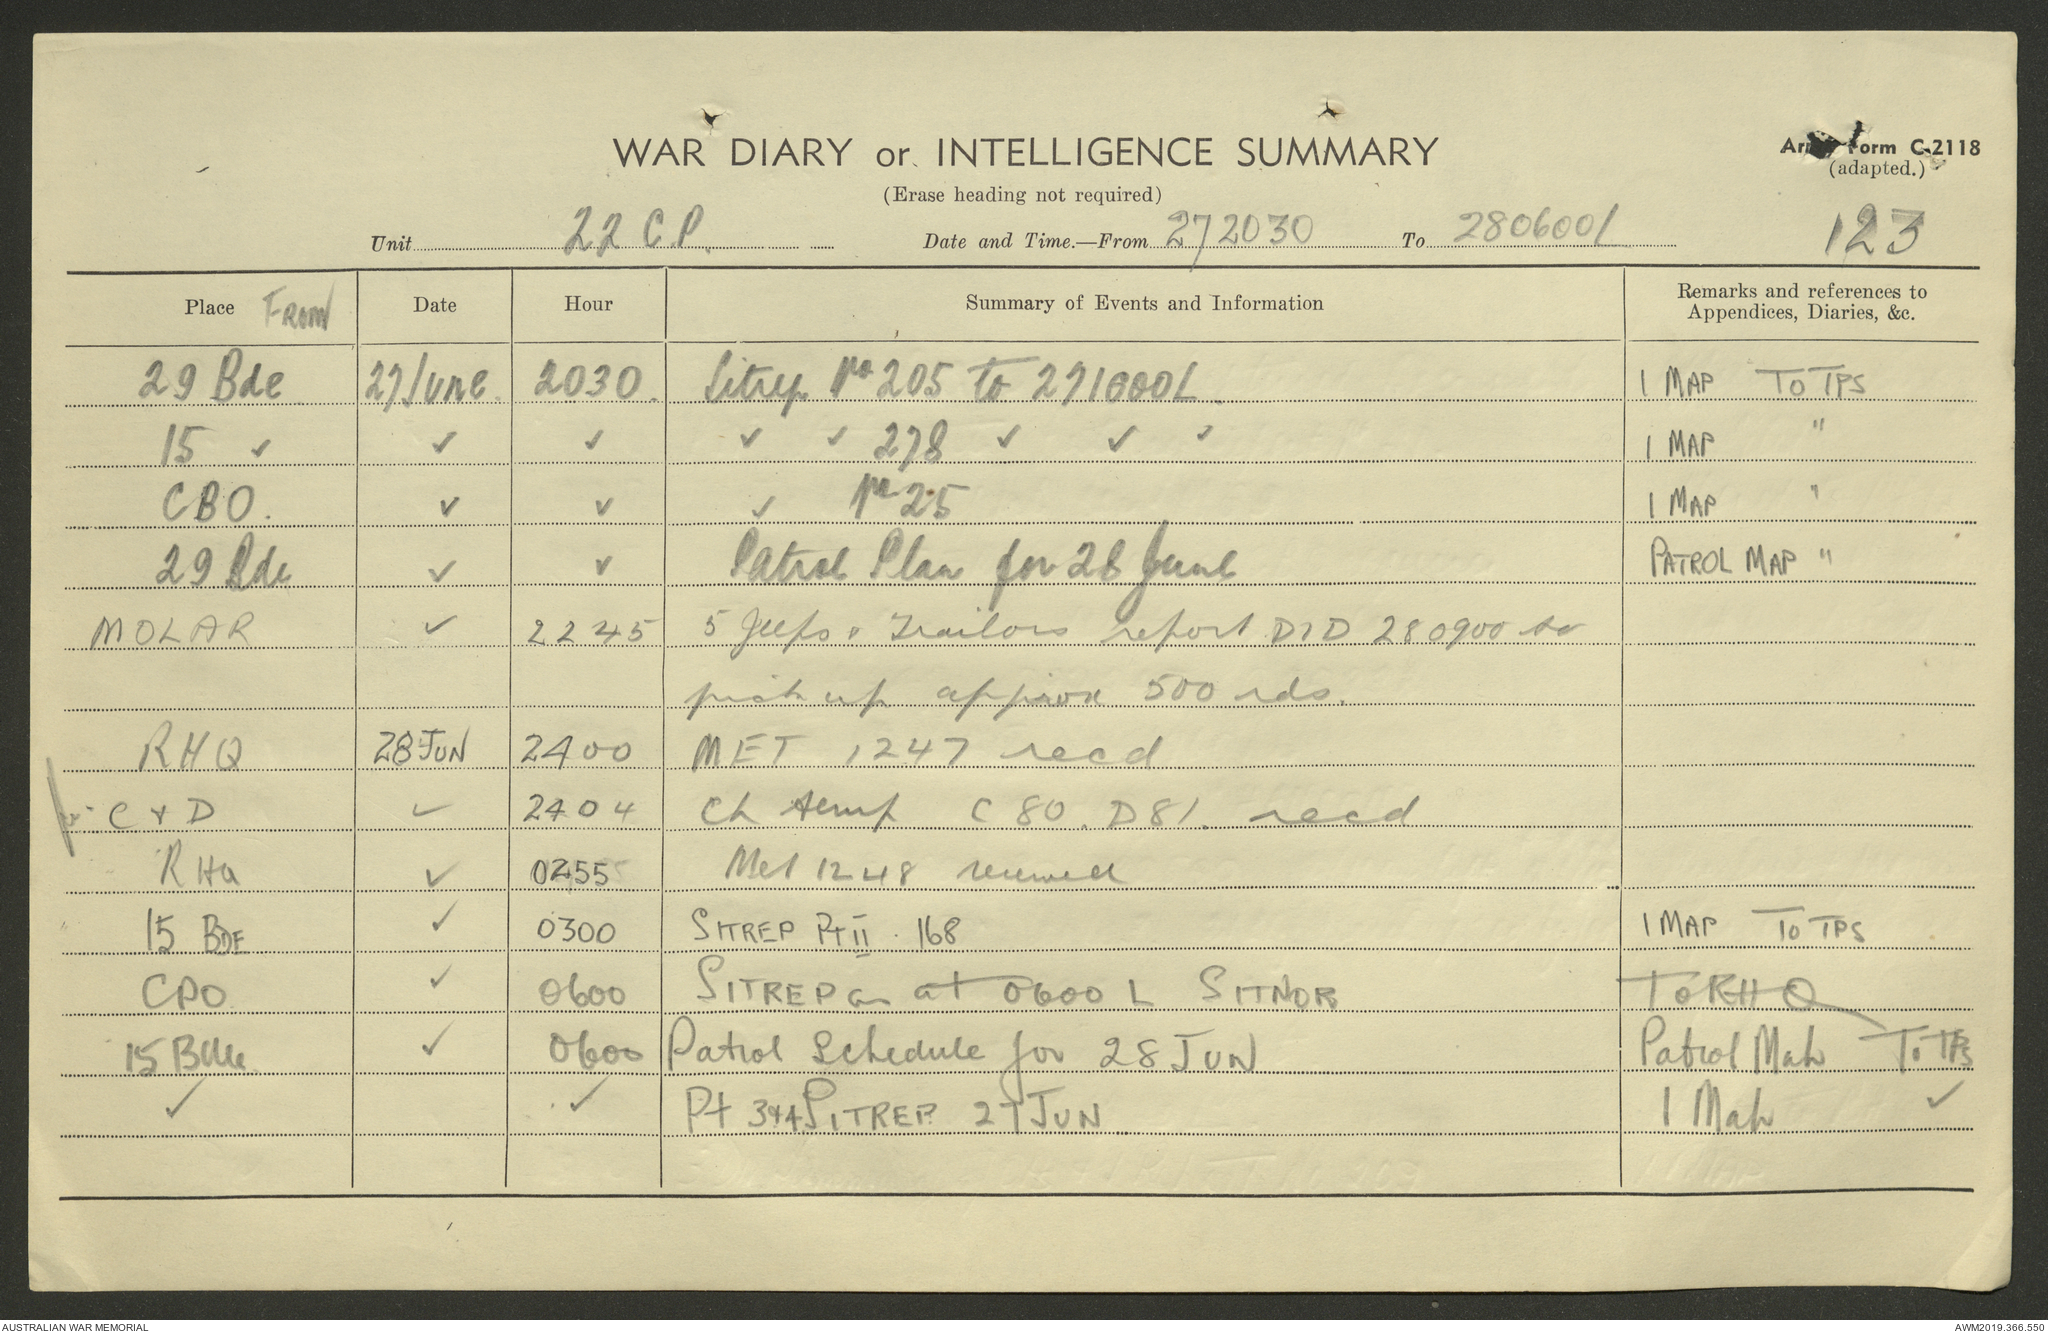 WAR DIARY or INTELLIGENCE SUMMARY
(Erase heading not required)
Army Form C-2118
(adapted.)
123
Unit 22 C.P. Date and Time.—From 272030 To 280600L
Place From Date Hour Summary of Events and Information Remarks and references to Appendices, Diaries, &c.
29 Bde 27 June. 2030. Sitrep No 205 to 271600L. 1 MAP TO TPS
15 ✓ ✓ ✓ ✓ ✓ 278 ✓ ✓ ✓ 1 MAP "
CBO. ✓ ✓ ✓ No 25 1 MAP "
29 Bde ✓ ✓ Patrol Plan for 28 June PATROL MAP "
MOLAR ✓ 2245 5 Jeeps & Trailors report DID 280900 to
pick up approx 500 rds.
RHQ 28 JUN 2400 MET 1247 recd
C & D ✓ 2404 Ch temp C 80. D 81. recd
RHQ ✓ 0255 Met 1248 received
15 BDE ✓ 0300 SITREP Pt II . 168 1 MAP To TPS
CPO ✓ 0600 SITREP as at 0600 L SITNOR To RHQ
15 Bde ✓ 0600 Patrol Schedule for 28 JUN Patrol Map To TPS
✓ ✓ Pt 3&4 SITREP. 27 JUN 1 Map ✓
AUSTRALIAN WAR MEMORIAL
AWM2019.366.550